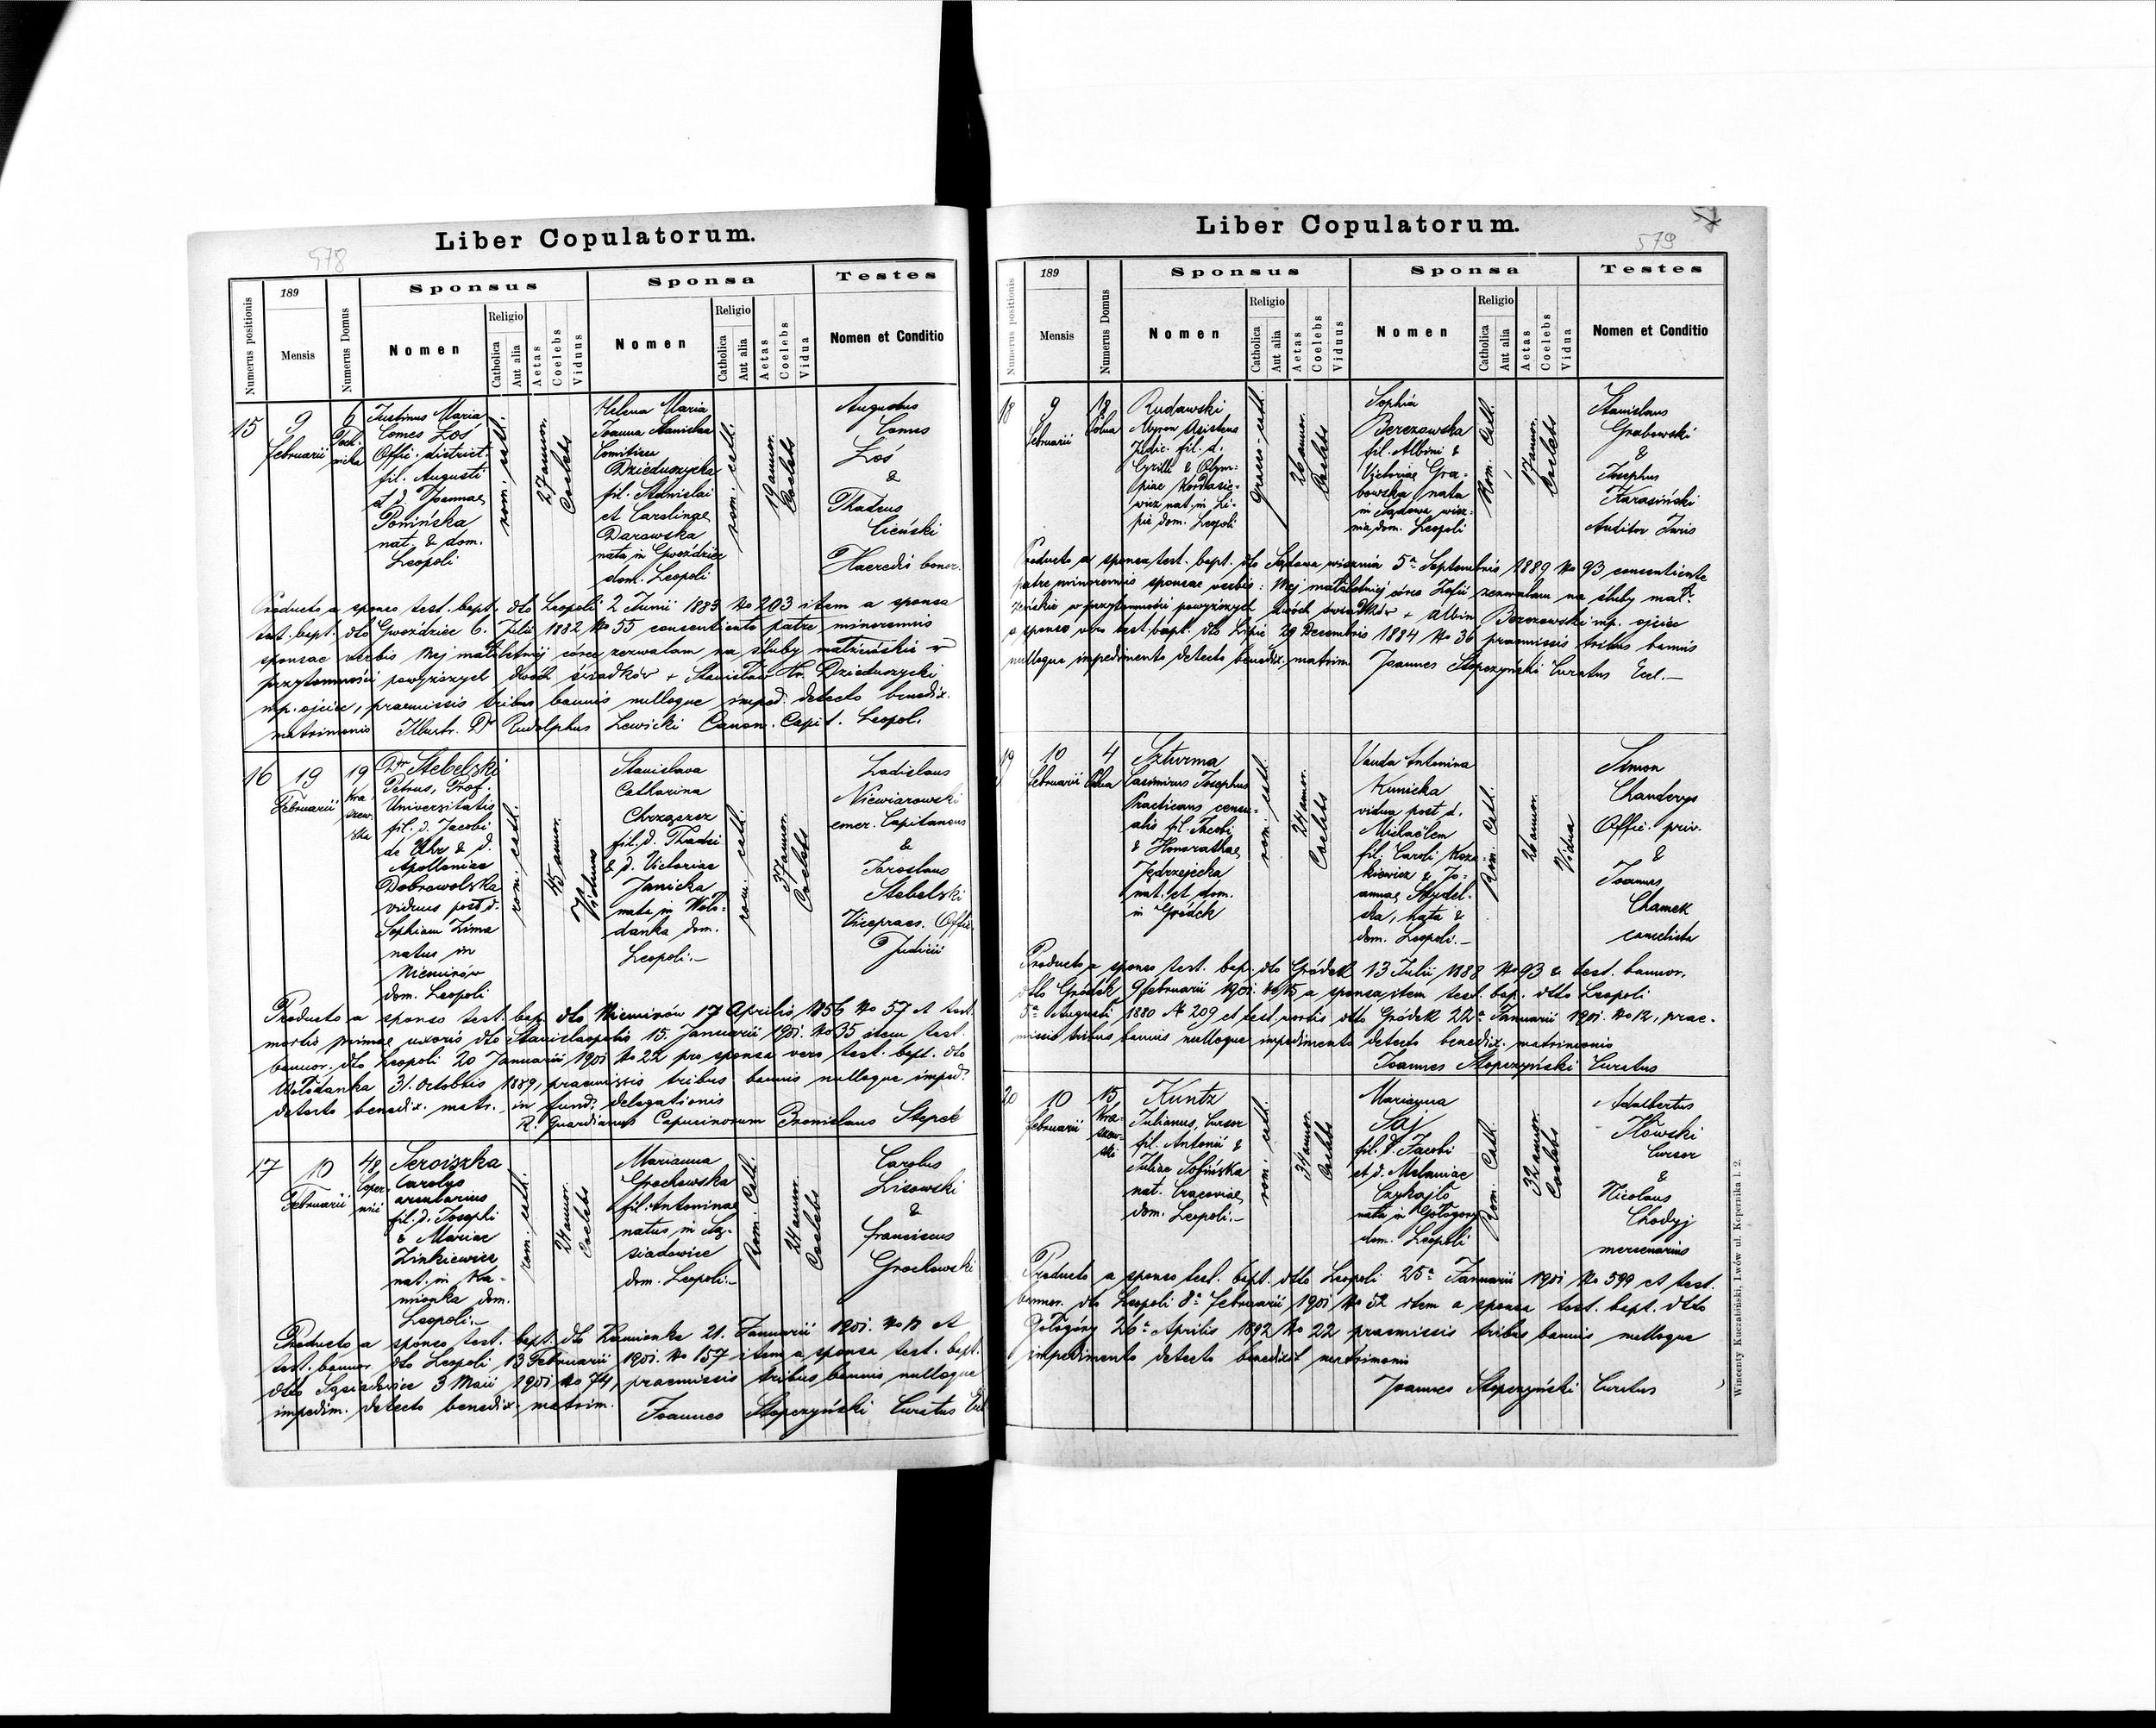 Liber Copulatorum.
578
Numerus positionis
189
Mensis
Numerus Domus
Sponsus
Nomen
Religio
Catholica
Aut alia
Aetas
Coelebs
Viduus
Sponsa
Nomen
Religio
Catholica
Aut alia
Aetas
Coelebs
Vidua
Testes
Nomen et Conditio
15
9
Februarii
6
Iustinus Maria
Comes Łoś
Offic. district.
fil. Augusti
et d. Joannae
Ponińska
nat. & dom.
Leopoli
rom. cath.
27 annor.
Coelebs
Helena Maria
Joanna Stanislaa
Comitissa
Dzieduszycka
fil. Stanislai
et Carolinae
Darowska
nata in Gwoździec
dom. Leopoli
rom. cath.
19 annor.
Coelebs
Augustus
Comes
Łoś
&
Thadeus
Cieński
Haeredes bonor.
Producto a sponso test. bapt. dto Leopoli 2 Junii 1883 No 203 item a sponsa
test. bapt. dto Gwoździec 6. Julii 1882 No 55 consentiente patre minorennis
sponsae verbis Mej małoletniej córce zezwalam na śluby małżeńskie w
przytomności powyższych dwóch świadków + Stanisław Hr. Dzieduszycki
mp. ojciec, praemissis tribus bannis nulloque imped. detecto benedix.
matrimonio Illustr. Dr Rudolphus Lewicki Canon. Capit. Leopol.
16
19
Februarii
19
Kra-
szew-
ska
Dr Stebelski
Petrus, Prof.
Universitatis
fil. d. Jacobi
de Uhr & d.
Apollonia
Dobrowolska
viduus post d.
Sophiam Zima
natus in
Niemirów
dom. Leopoli
rom. cath.
45 annor.
Viduus
Stanislava
Catharina
Chrząszcz
fil. d. Thadei
& d. Victoriae
Janicka
nata in Woło-
danka dom.
Leopoli.-
rom. cath.
37 annor.
Coelebs
Ladislaus
Niewiarowski
emer. Capitaneus
&
Jaroslaus
Stebelski
Vicepraes. Offic.
Judicii
Producto a sponso test. bap. dto Niemirów 17 Aprilis 1856 No 57 et test.
mortis primae uxoris dto Stanislaopolis 15. Januarii 1901. No 35 item test.
bannor. dto Leopoli 20 Januarii 1901 No 22 pro sponsa vero test. bapt. dto
Wołodanka 31. Octobris 1889, praemissis tribus bannis nulloque imped.
detecto benedix. matr. in fund. delegationis
R. Guardianus Capucinorum Bronislaus Stępek
17
10
Februarii
48
Coper-
nici
Seroiszka
Carolus
fil. d. Josephi
& Mariae
Zinkiewicz
nat. in Ka-
mionka dom.
Leopoli.-
rom. cath.
24 annor.
Coelebs
Marianna
Grochowska
fil. Antoninae
natus in Są-
siadowice
dom. Leopoli.-
Rom. Cath.
24 annor.
Coelebs
Carolus
Lisowski
&
Franciscus
Grochowski
Producto a sponso test. bapt. dto Kamionka 21. Januarii 1901. No 17 et
test. bannor. dto Leopoli 13 Februarii 1901. No 157 item a sponsa test. bapt.
dto Sąsiadowice 3 Maii 1901 No 74, praemissis tribus bannis nulloque
impedim. detecto benedix. matrim. Joannes Stopczyński Curatus Eccl
Liber Copulatorum.
579
Numerus positionis
189
Mensis
Numerus Domus
Sponsus
Nomen
Religio
Catholica
Aut alia
Aetas
Coelebs
Viduus
Sponsa
Nomen
Religio
Catholica
Aut alia
Aetas
Coelebs
Vidua
Testes
Nomen et Conditio
18
9
Februarii
Rudawski
Myron Asistens
fil. d.
Cyrilli & Olym-
piae Kordasie-
wicz nat. in Li-
pie dom. Leopoli
graeco-cath.
26 annor.
Coelebs
Sophia
Berezowska
fil. Albini &
Victoriae Gra-
bowska nata
in Sądowa wisz-
nia, dom. Leopoli
Rom. Cath.
17 annor.
Coelebs
Stanislaus
Grabowski
&
Josephus
Karasiński
Auditor Juris
Producto a sponsa test. bapt. dto Sądowa wisznia 5a Septembris 1889 No 93 consentiente
patre minorennis sponsae verbis: Mej małoletniej córce Zofii zezwalam na śluby mał-
żeńskie w przytomności powyższych dwóch świadków + Albin Berezowski mp. ojciec
a sponso vero test. bapt. dto Lipie 29 Decembris 1884 No 36 praemissis tribus bannis
nulloque impedimento detecto benedix. matrim. Joannes Stopczyński Curatus Eccl.-
19
10
Februarii
4
Szturma
Casimirus Josephus
Practicans censu-
alis fil. Jacobi
& Honorathae
Jędrzejecka
nat. et dom.
in Gródek
rom. cath.
24 annor.
Coelebs
Vanda Antonina
Kunicka
vidua post d.
Michaëlem
fil. Caroli Koza-
kiewicz & Jo-
annae Stydel-
ska, nata &
dom. Leopoli.-
Rom. Cath.
26 annor.
Vidua
Simon
Chanderys
Offic. priv.
&
Joannes
Chamek
cancelista
Producto a sponso test. bap. dto Gródek 13 Julii 1888 No 93 & test. bannor.
dto Gródek 9 februarii 1901. No 15 a sponsa item test. bap. dtto Leopoli
5a Augusti 1880 No 209 et test. mortis dto Gródek 22a Januarii 1901. No 12, prae-
missis tribus bannis nulloque impedimento detecto benedix. matrimonio
Joannes Stopczyński Curatus
20
10
Februarii
15
Kra-
szew-
ski
Kuntz
Julianus, Cursor
fil. Antonii &
Juliae Sofińska
nat. Cracoviae
dom. Leopoli.-
rom. cath.
34 annor.
Coelebs
Marianna
Saj
fil. d. Jacobi
et d. Melaniae
Czykajło
nata in Gołogóry
dom. Leopoli
Rom. Cath.
32 annor.
Coelebs
Adalbertus
Cursor
&
Nicolaus
Chodyj
mercenarius
Producto a sponso test. bapt. dtto Leopoli 25a Januarii 1901 No 599 et test.
bannor. dto Leopoli 8a Februarii 1901 No 52 item a sponsa test. bapt. dtto
Gołogóry 26a Aprilis 1892 No 22 praemissis tribus bannis nulloque
impedimento detecto benedixit matrimonio
Joannes Stopczyński Curatus
Wincenty Kuczabiński, Lwów ul. Kopernika l. 2.